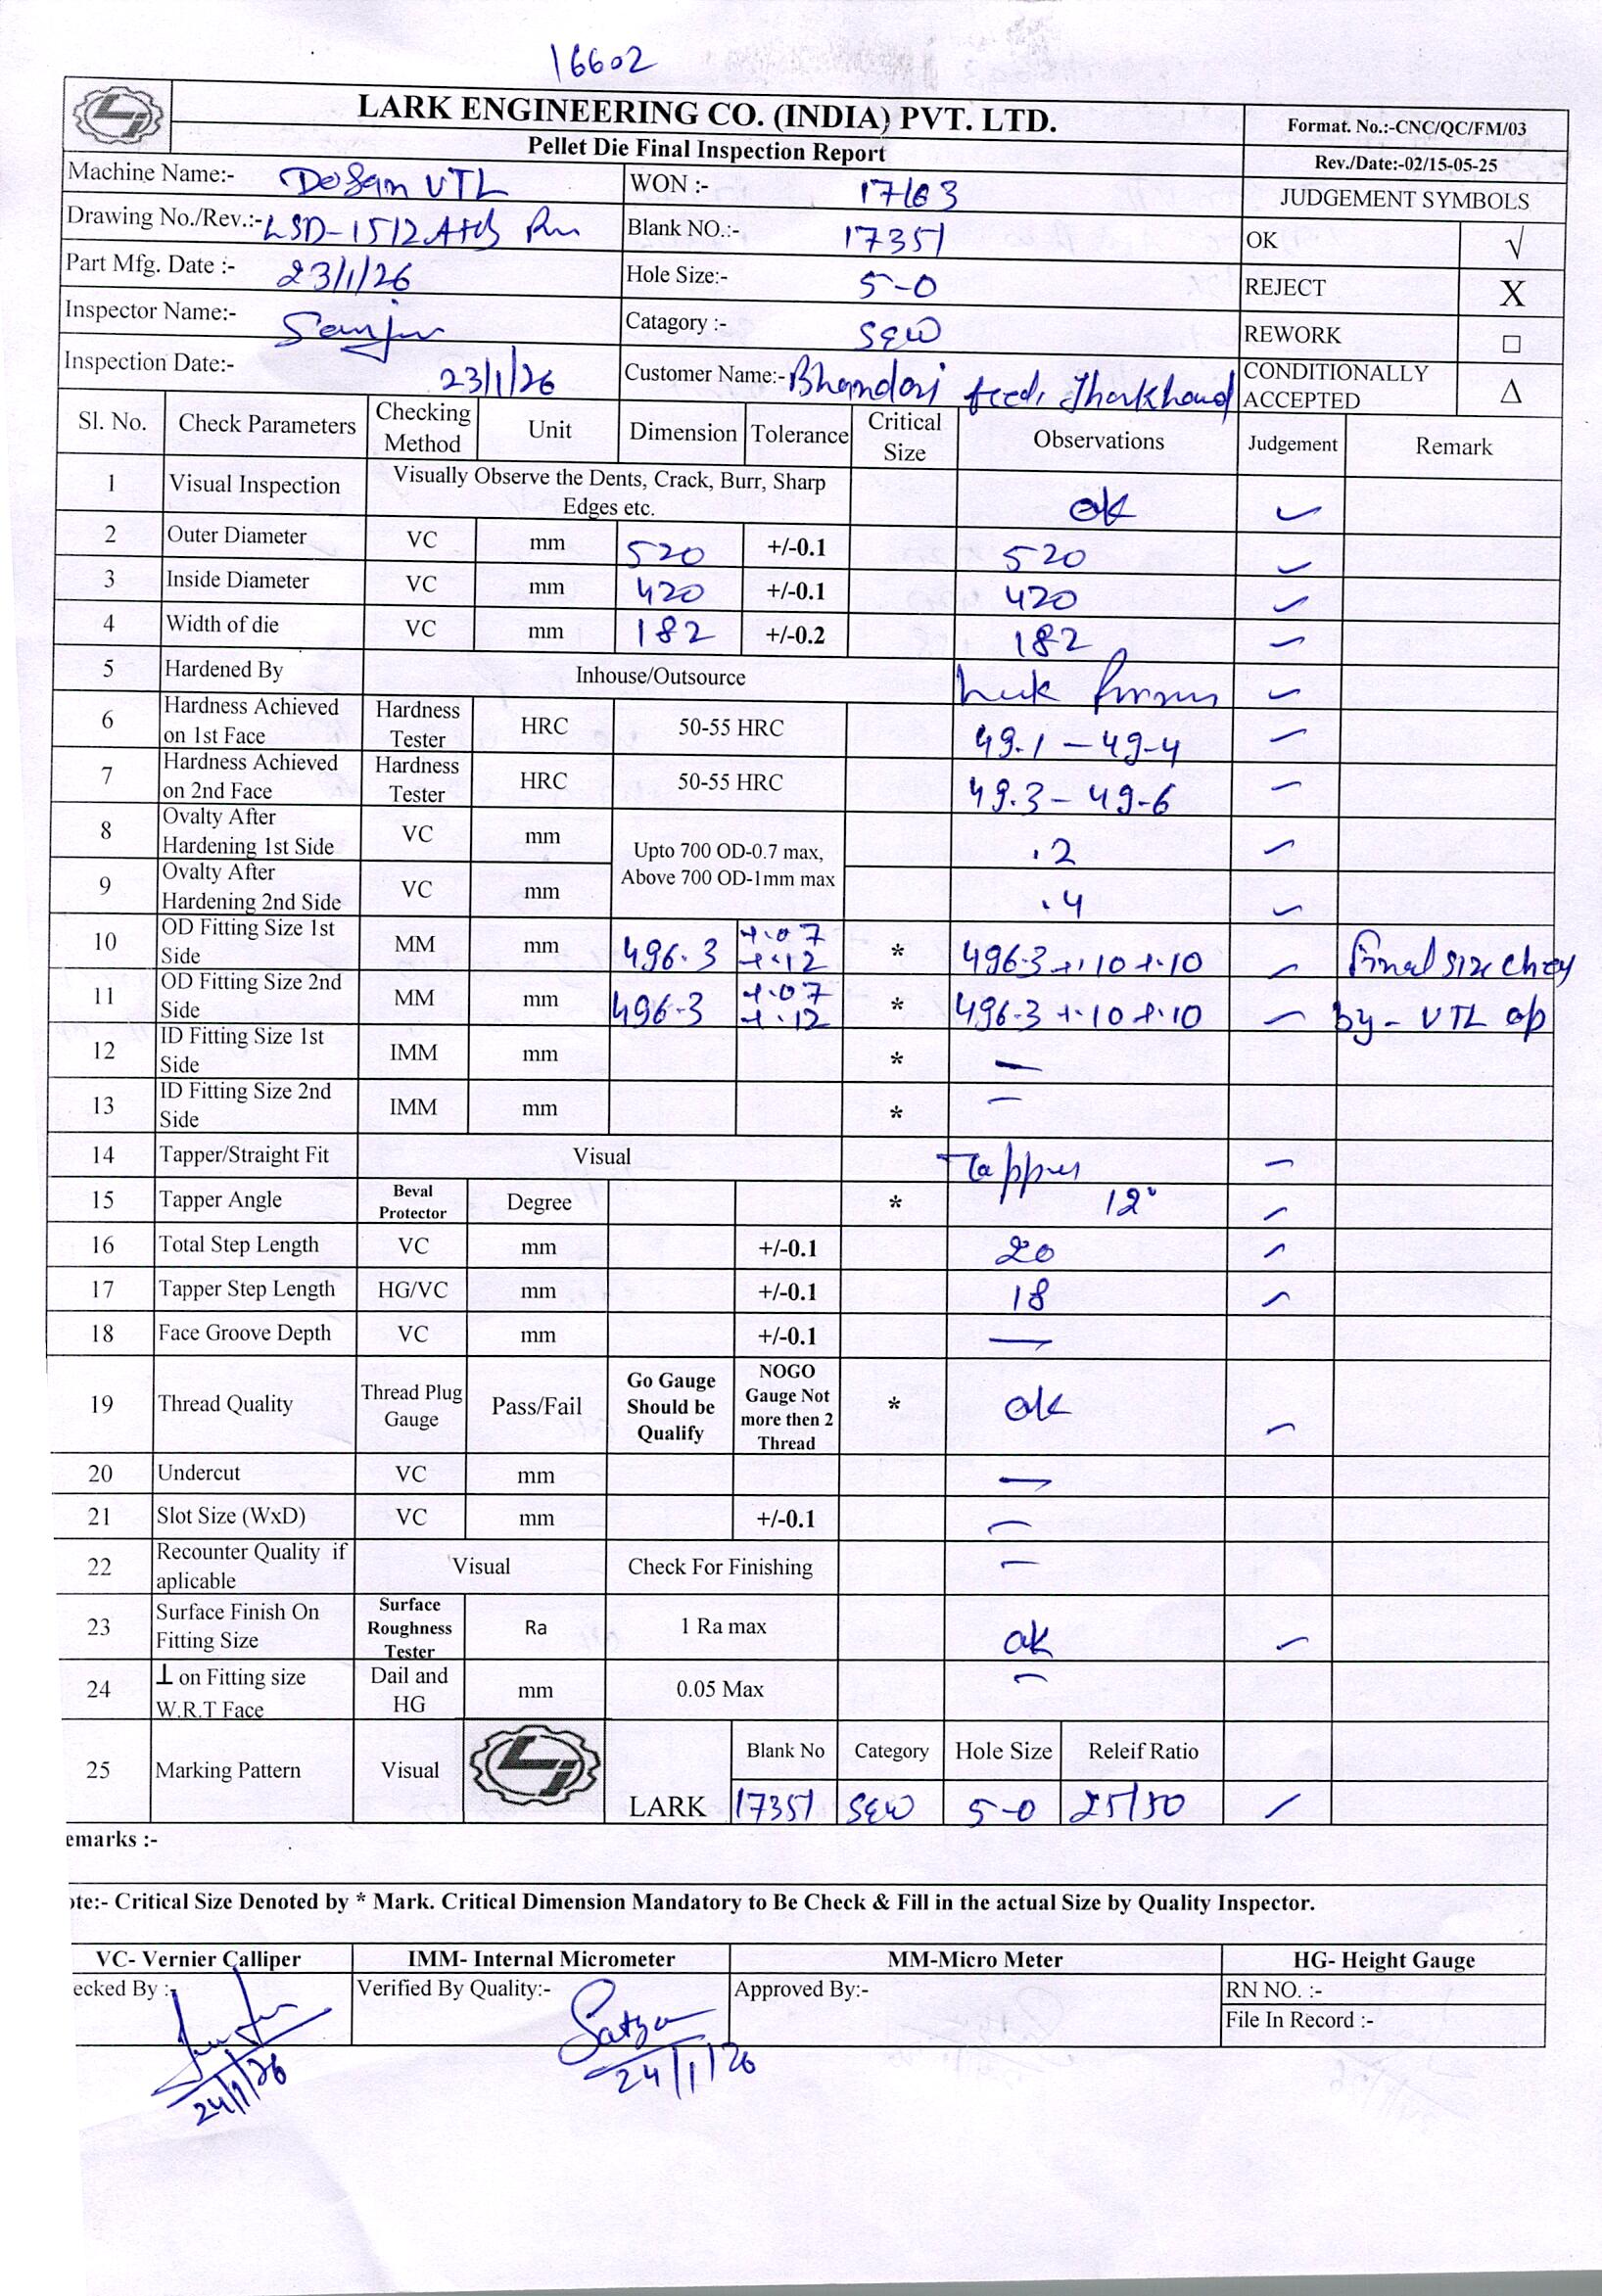 16602
LARK ENGINEERING CO. (INDIA) PVT. LTD.
Pellet Die Final Inspection Report
Format. No.:-CNC/QC/FM/03
Rev./Date:-02/15-05-25
Machine Name:- Dosan VTL
WON :- 17163
JUDGEMENT SYMBOLS
Drawing No./Rev.:- LSD-1512
Blank NO.:- 17351
OK √
Part Mfg. Date :- 23/1/26
Hole Size:- 5-0
REJECT X
Inspector Name:-
Catagory :- S&W
REWORK □
Inspection Date:- 23/1/26
Customer Name:- Bhandari feed, Jharkhand
CONDITIONALLY ACCEPTED Δ
Sl. No. Check Parameters Checking Method Unit Dimension Tolerance Critical Size Observations Judgement Remark
1 Visual Inspection Visually Observe the Dents, Crack, Burr, Sharp Edges etc. ok ✓
2 Outer Diameter VC mm 520 +/-0.1 520 ✓
3 Inside Diameter VC mm 420 +/-0.1 420 ✓
4 Width of die VC mm 182 +/-0.2 182 ✓
5 Hardened By Inhouse/Outsource ✓
6 Hardness Achieved on 1st Face Hardness Tester HRC 50-55 HRC 49.1 - 49-4 ✓
7 Hardness Achieved on 2nd Face Hardness Tester HRC 50-55 HRC 49.3 - 49-6 ✓
8 Ovalty After Hardening 1st Side VC mm Upto 700 OD-0.7 max, Above 700 OD-1mm max .2 ✓
9 Ovalty After Hardening 2nd Side VC mm .4 ✓
10 OD Fitting Size 1st Side MM mm 496.3 +.07 +.12 * 496.3 +.10 +.10 ✓ final size
11 OD Fitting Size 2nd Side MM mm 496-3 +.07 +.12 * 496.3 +.10 +.10 ✓ by - VTL op
12 ID Fitting Size 1st Side IMM mm * —
13 ID Fitting Size 2nd Side IMM mm * —
14 Tapper/Straight Fit Visual Tapper ✓
15 Tapper Angle Beval Protector Degree * 12° ✓
16 Total Step Length VC mm +/-0.1 20 ✓
17 Tapper Step Length HG/VC mm +/-0.1 18 ✓
18 Face Groove Depth VC mm +/-0.1 —
19 Thread Quality Thread Plug Gauge Pass/Fail Go Gauge Should be Qualify NOGO Gauge Not more then 2 Thread * ok ✓
20 Undercut VC mm —
21 Slot Size (WxD) VC mm +/-0.1 —
22 Recounter Quality if aplicable Visual Check For Finishing —
23 Surface Finish On Fitting Size Surface Roughness Tester Ra 1 Ra max ok ✓
24 ⊥ on Fitting size W.R.T Face Dail and HG mm 0.05 Max —
25 Marking Pattern Visual LARK Blank No Category Hole Size Releif Ratio
17351 S&W 5-0 25/50 ✓
emarks :-
ote:- Critical Size Denoted by * Mark. Critical Dimension Mandatory to Be Check & Fill in the actual Size by Quality Inspector.
VC- Vernier Calliper IMM- Internal Micrometer MM-Micro Meter HG- Height Gauge
ecked By :- Verified By Quality:- Satya Approved By:- RN NO. :-
File In Record :-
24/1/26 24/1/26